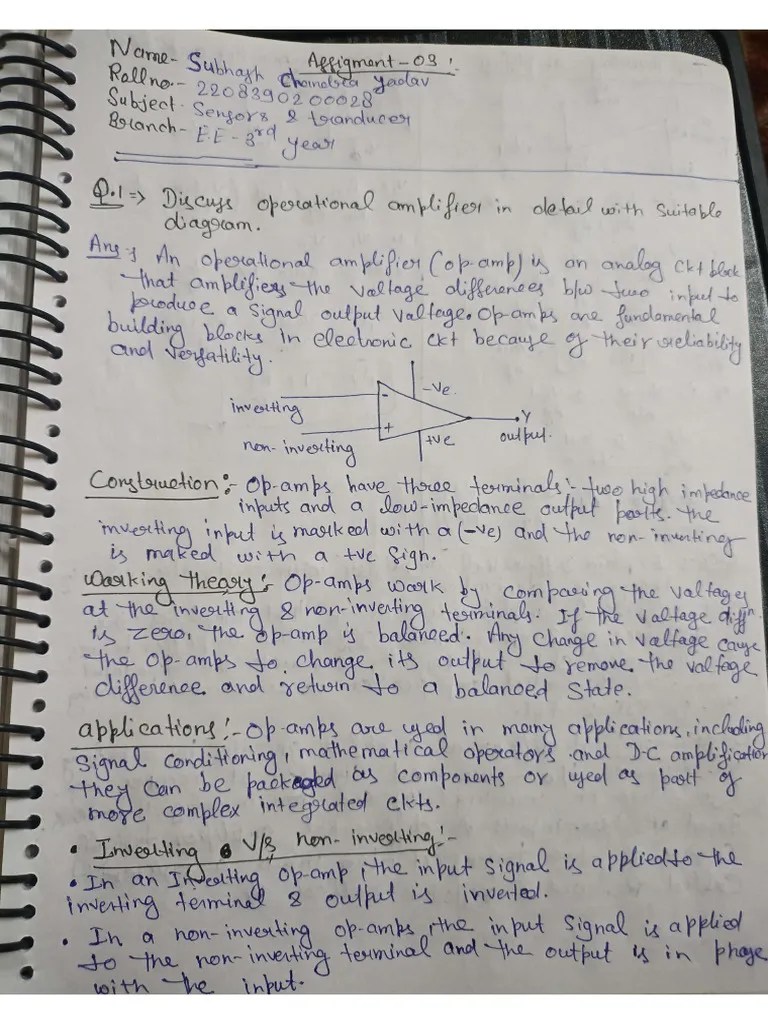 Assigment - 03 :-
Name - Subhash Chandra Yadav
Roll no. - 2208390200028
Subject - Sensors & tranducer
Branch - E.E - 3rd year
Q.1 => Discuss operational amplifier in detail with suitable
diagram.
Ans :- An operational amplifier (op-amp) is an analog ckt block
that amplifiers the voltage differences b/w two input to
produce a signal output voltage. Op-amps are fundamental
building blocks in electronic ckt because of their reliability
and versatility.
-ve
inverting
-
+
Y
non-inverting
+ve
output.
Construction :- Op-amps have three terminals :- two high impedance
inputs and a low-impedance output parts. The
inverting input is marked with a (-ve) and the non-inverting
is maked with a +ve sign.
Warking theory :- Op-amps work by comparing the valtages
at the inverting & non-inverting terminals. If the valtage diffn
is zero, the op-amp is balanced. Any change in valtage cause
the op-amps to change its output to remove the valtage
difference and return to a balanced state.
applications :- Op-amps are used in many applications, including
signal conditioning, mathematical operators and D-C amplification
they can be packaged as components or used as part of
more complex integrated ckts.
• Inverting V/s non-inverting :-
• In an Inverting op-amp, the input signal is applied to the
inverting terminal & output is inverted.
• In a non-inverting op-amps, the input signal is applied
to the non-inverting terminal and the output is in phase
with the input.